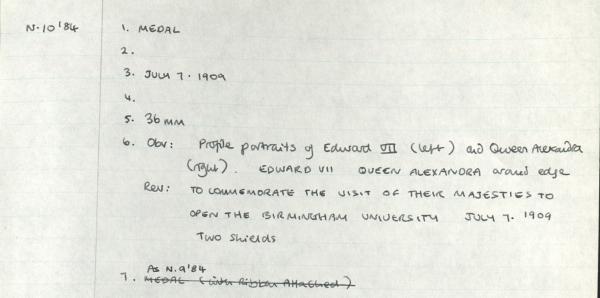 N.10'84
1. MEDAL
2.
3. JULY 7. 1909
4.
5. 36 MM
6. Obv: Profile portraits of Edward VII (left) and Queen Alexandra
(right). EDWARD VII QUEEN ALEXANDRA around edge
Rev: TO COMMEMORATE THE VISIT OF THEIR MAJESTIES TO
OPEN THE BIRMINGHAM UNIVERSITY JULY 7. 1909
Two shields
As N.9'84
7. MEDAL (with Ribbon Attached)